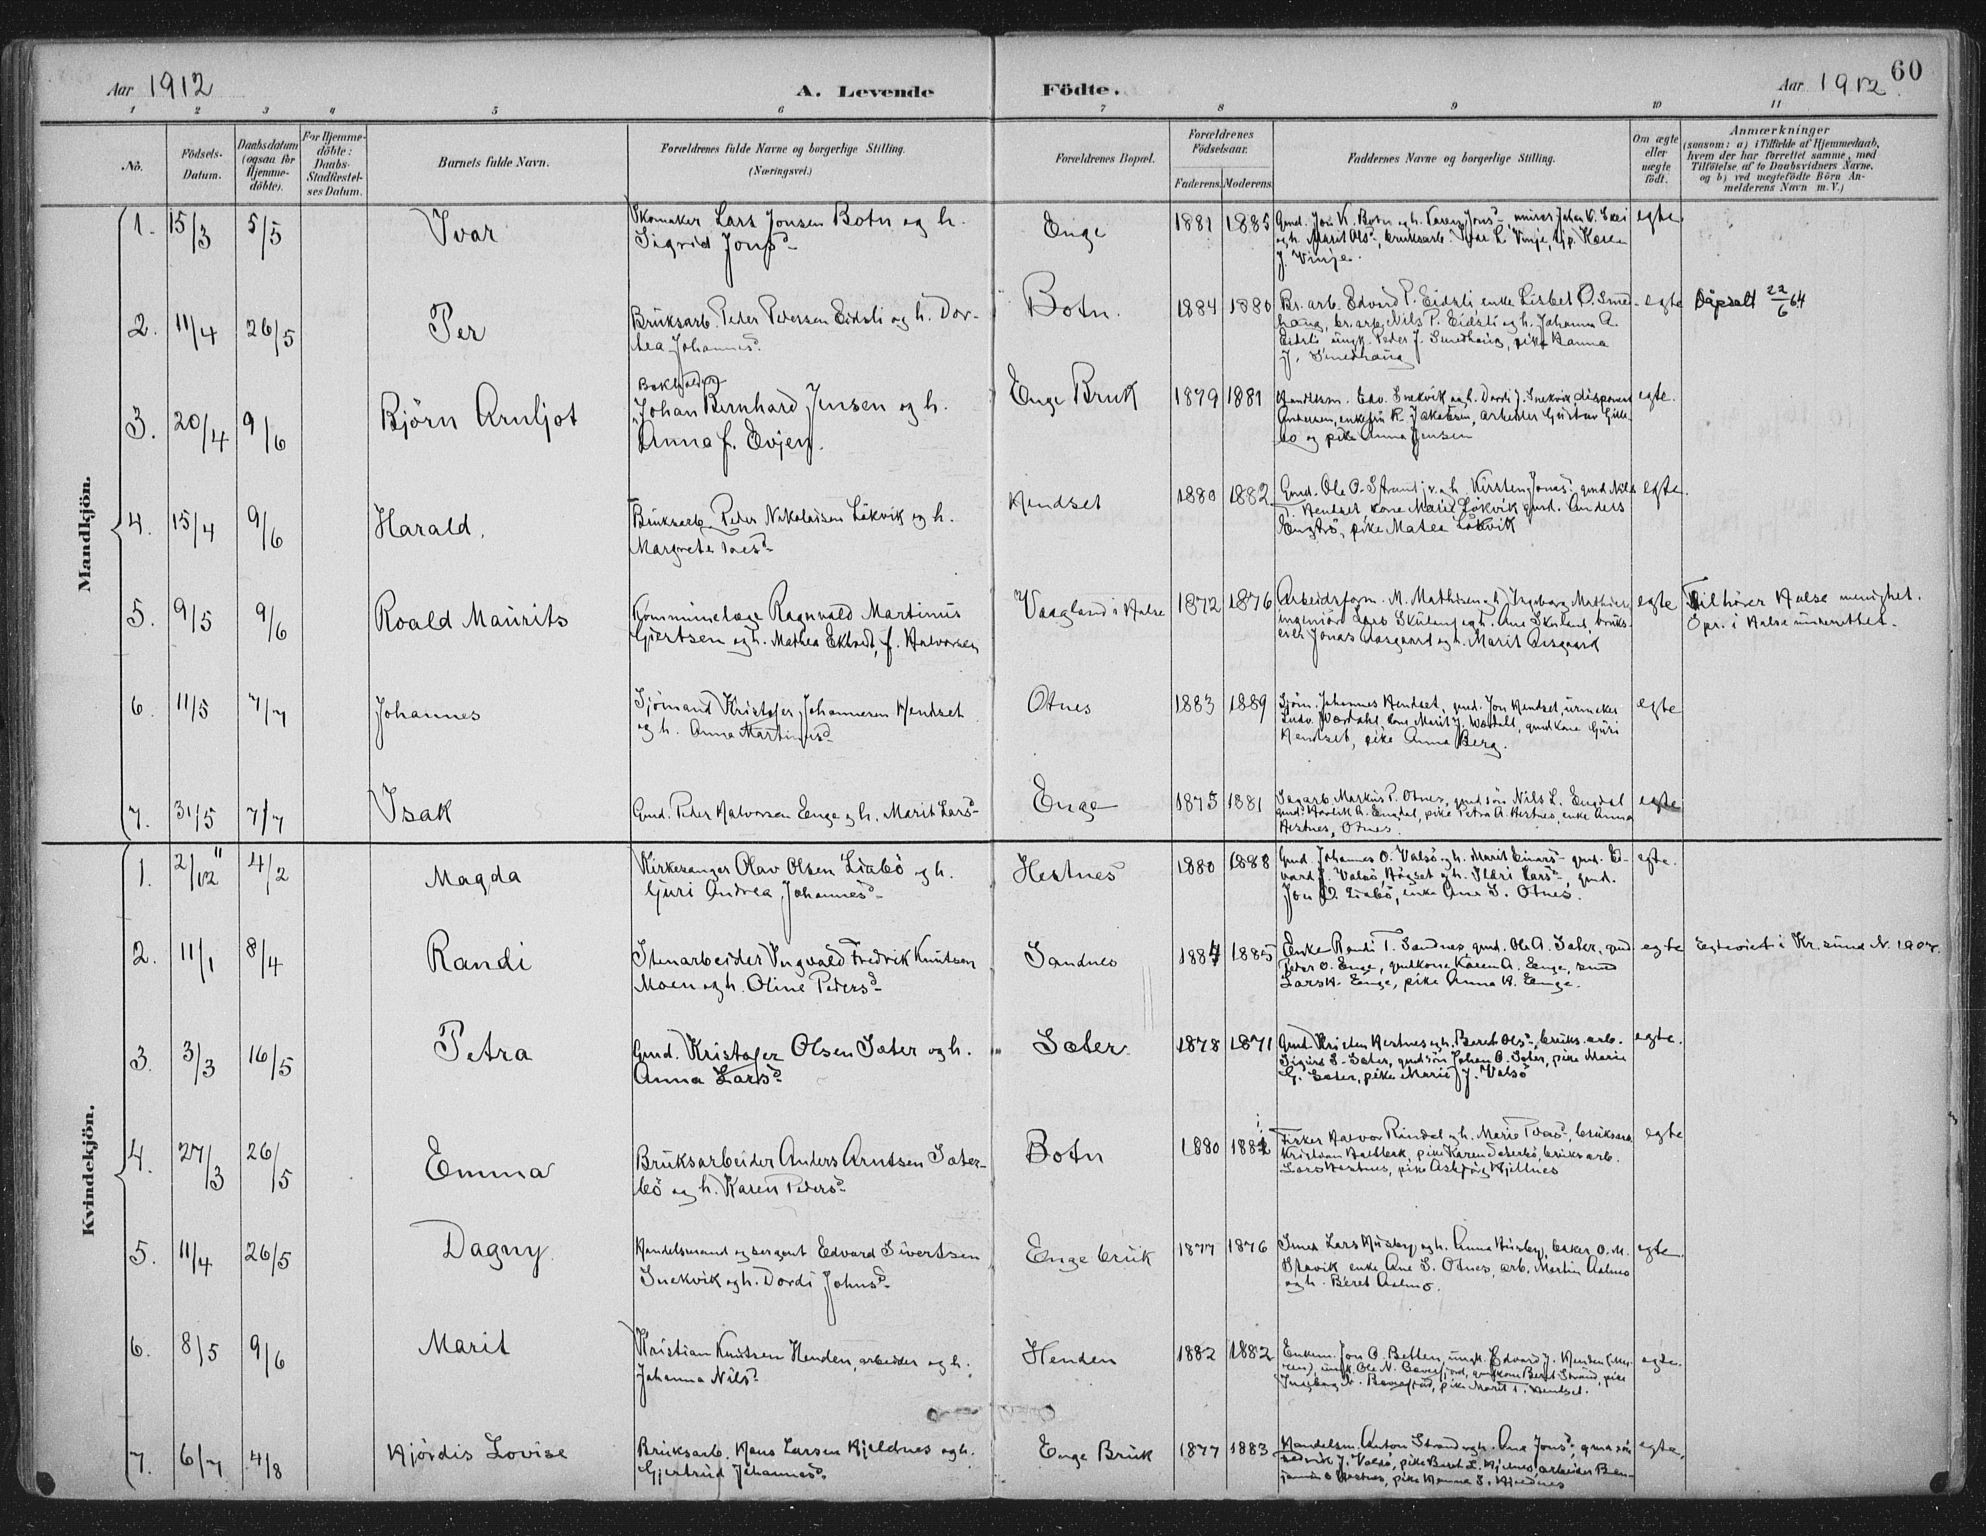 Aar 1912
A. Levende Födte.
Aar 1912
60
1 2 3 4 5 6 7 8 9 10 11
No.
Födsels-Datum.
Daabsdatum (ogsaa for Hjemme-döbte).
For Hjemme-döbte: Daabs-Stadfæstel-ses Datum.
Barnets fulde Navn.
Forældrenes fulde Navne og borgerlige Stilling.
(Næringsvei.)
Forældrenes Bopæl.
Forældrenes Födselsaar.
Faderens. Moderens.
Faddernes Navne og borgerlige Stilling.
Om ægte eller uægte födt.
Anmærkninger
(saasom: a) i Tilfælde af Hjemmedaab, hvem der har forrettet samme, med Tilföielse af to Daabsvidners Navne, og b) ved uægtefödte Börn An-melderens Navn m. V.)
Mandkjön.
1. 15/3 5/5 Ivar
Skomaker Lars Jonsen Botn og h.
Sigrid Jonsd.
Enge 1881 1885
Gmd. Jon K. Botn og h. Karen Jonsd.
og h. Marit Olsd., bruksarb. Ivar L. Vinje, Karen
J. Vinje.
egte
2. 11/4 26/5 Per
Bruksarb. Peder Pedersen Eidsli og h. Dor-
tea Johannesd.
Botn. 1884 1880
Br. arb. Edvard P. Eidsli enke Lisbet O. Smed-
haug, br. arb. Nils P. Eidsli og h. Johanna A.
Eidsli ungk. Peder J. Smedhaug, pike Hanna
J. Smedhaug
egte Dåpsatt 22/6 64
3. 20/4 9/6 Björn Arnljot
Bokholder
Johan Bernhard Jensen og h.
Anna f. Evjen.
Enge Bruk 1879 1881
Handlesm. Edv. Snekvik og h. Dordi J. Snekvik disponent
Andersen, enkefru K. Jakobsen, arbeider Gustav Gule-
bo og pike Anna Jensen
egte.
4. 15/4 9/6 Harald.
Bruksarb. Peder Nikolaisen Lökvik og h.
Margrete
Hendset 1880 1882
Gmd. Ole O. Strand jr. og h. Kirsten Jonasd. gmd Nils
T. Hendset kone Marie Lökvik gmd. Anders
Engtrö, pike Matea Lökvik
egte.
5. 9/5 9/6 Roald Maurits
Kommunelæge Ragnvald Martinus
Gjertsen og h. Mathea f. Halvorsen
Vaagland i Halse 1872 1876
Arbeidsform. M. Mathisen og h. Ingeborg Mathisen
ingeniör Lars Skulund og h. Ane Skulund bruks-
eier Jonas Aasgaard og h. Marit Aasgaard
egte Tilhörer Halse menighet.
Opr. i Halse underrettet.
6. 11/5 7/7 Johannes
Sjömand Kristofer Johannesen Hendset
og h. Anna Martinusd.
Otnes 1883 1889
Sjöm. Johannes Hendset, gmd. Jon Hendset, urmaker
Ludv. Wordahl, kone Marit J. Wordahl, gmdkone Guri
Hendset, pike Anna Berg.
egte
7. 31/5 7/7 Isak
Gmd. Peter Halvorsen Enge og h. Marit Larsd.
Enge 1875 1881
Sagarb. Markus P. Otnes, gmdsön Nils L. Engdal
gmd. Havlik A. Engdal, pike Petra A. Hestnes, enke Anna
Hestnes, Otnes.
egte
Kvindekjön.
1. 2/12 11 4/2 Magda
Kirkesanger Olav Olsen Liabö og h.
Guri Andrea Johannesd.
Hestnes 1880 1888
Gmd. Johannes O. Valsö og h. Marit Einarsd. gmd. Ed-
vard J. Valsö, Högset og h. Ildri Larsd., gmd.
Jon O. Liabö, enke Ane S. Otnes.
egte.
2. 11/1 8/4 Randi
Stenarbeider Ingvald Fredrik Knutsen
Moen og h. Oline Pedersd.
Sandnes 1884 1885
Enke Randi T. Sandnes, gmd. Ole A. Sæter, gmd
Peder O. Enge, gmdkone Karen A. Enge, smed
Lars H. Enge, pike Anna H. Enge.
egte Egteviet i Kr.sund N. 1907.
3. 3/3 16/5 Petra
Gmd. Kristofer Olsen Sæter og h.
Anna Larsd.
Sæter. 1878 1871
Gmd. Kristen Hestnes og h. Beret Olsd., bruks. arb.
Sigurd S. Sæter, gmdsön Johan O. Sæter, pike Marie
G. Sæter, pike Marie J. Valsö
egte.
4. 27/3 26/5 Emma
Bruksarbeider Anders Arntsen Sæter-
bö og h. Karen Pedersd.
Botn 1880
Fisker Halvor Rindal og h. Marie bruksarb.
Kristian Halbak, pike Karen Sæterbö, bruksarb.
Lars Hestnes, pike Asbjörg Hjellnes
egte
5. 11/4 26/5 Dagny.
Handelsmand og sergent Edvard Sivertsen
Snekvik og h. Dordi Johnsd.
Enge bruk 1877 1876
Smed Lars Husby og h. Anna Husby, baker O. M.
Stavik enke Ane S. Otnes, arb. Martin Aalmo
og h. Beret Aalmo.
egte.
6. 8/5 9/6 Marit
Kristian Knutsen Henden, arbeider og h.
Johanna Nilsd.
Henden 1882 1882
Enkem. Jon O. Betten, ungk. Edvard J. Henden
ungk. Ole N. Bæverfjord, gmdkone Beret Strand, pike
Ingeborg N. Bæverfjord, pike Marit T. Hendset.
egte.
7. 6/7 4/8 Hjördis Lovise
Bruksarb. Hans Larsen Hjeldnes og h.
Gjertrud Johannesd.
Enge Bruk 1877 1883
Handelsm. Anton Strand og h. Ane Jonsd., gmdsön
Fredrik J. Valsö, pike Beret L. Hjelnes, arbeider Ben-
jamin O Hestnes, pike Hanna L. Hjeldnes
egte.